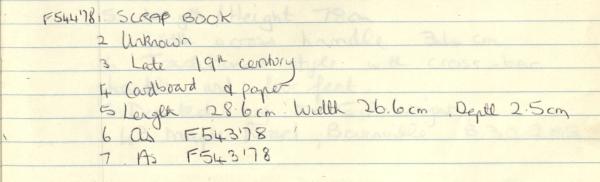 F544'78 1 SCRAP BOOK
2 Unknown
3 Late 19th century
4 Cardboard & paper
5 Length 28.6cm. Width 26.6cm. Depth 2.5cm
6 As F543'78
7. As F543'78